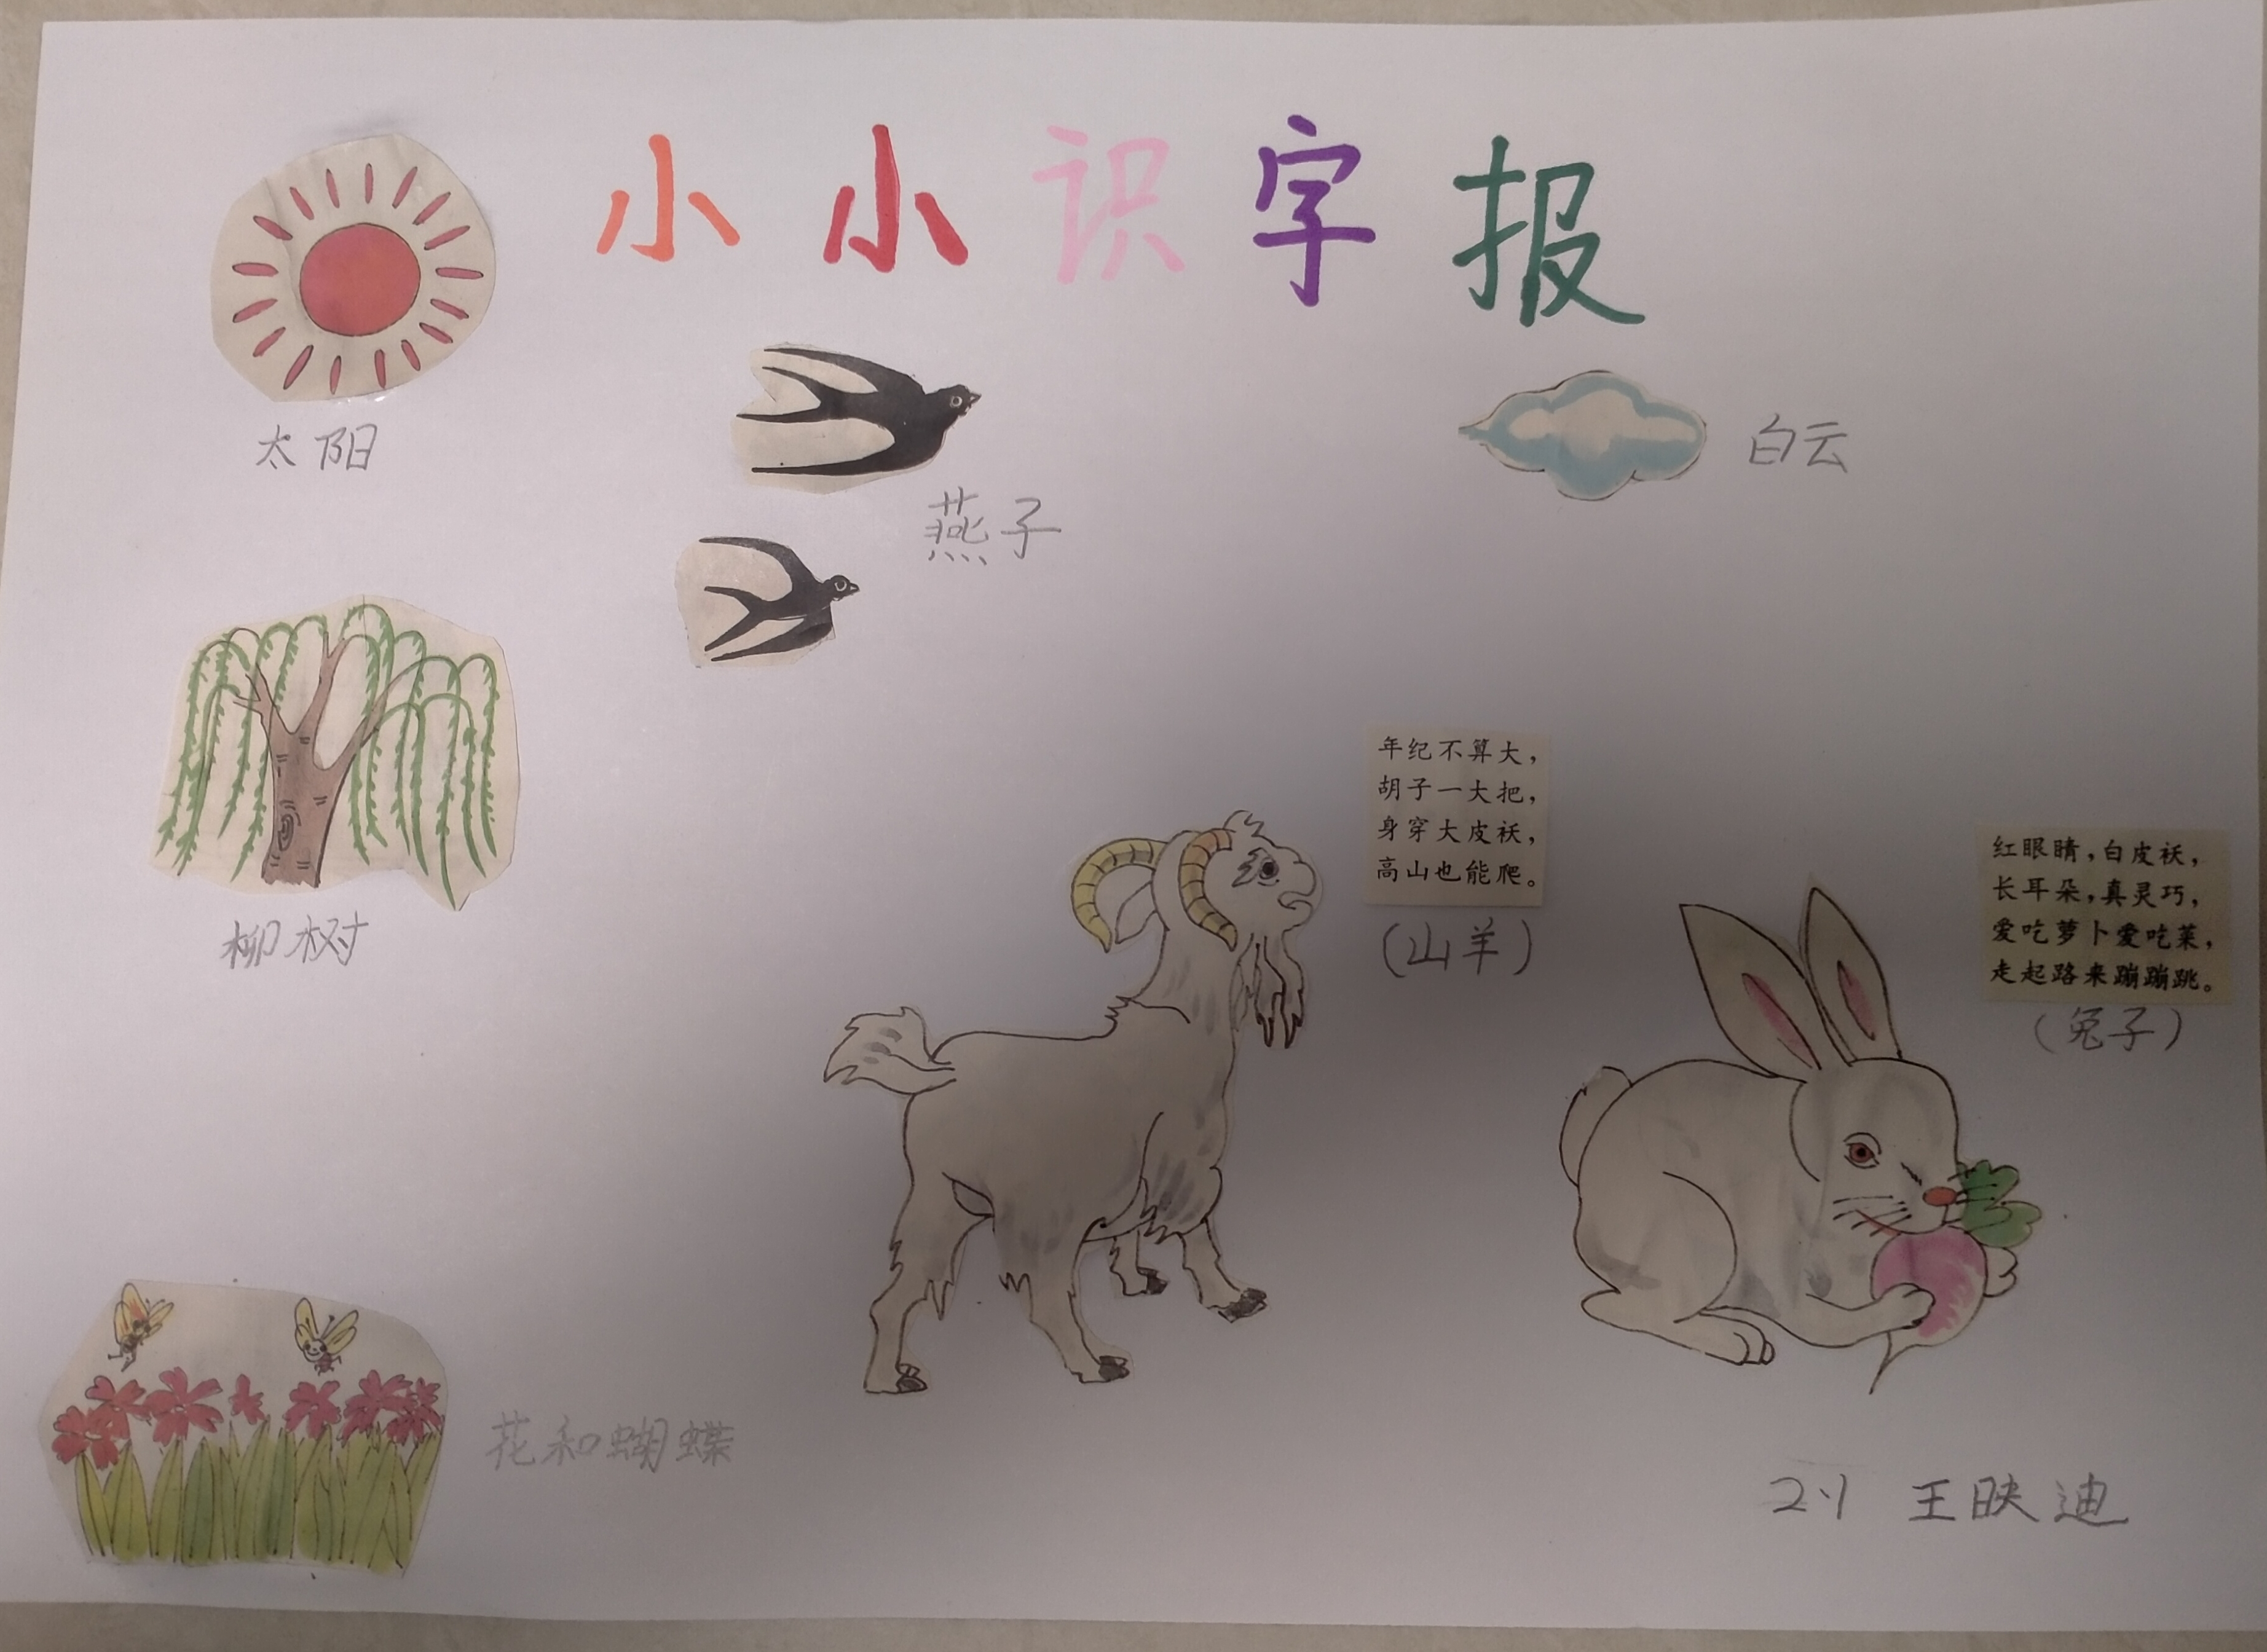 小小识字报
太阳
燕子
白云
柳树
年纪不算大，
胡子一大把，
身穿大皮袄，
高山也能爬。
（山羊）
红眼睛，白皮袄，
长耳朵，真灵巧，
爱吃萝卜爱吃菜，
走起路来蹦蹦跳。
（兔子）
花和蝴蝶
2.1 王映迪